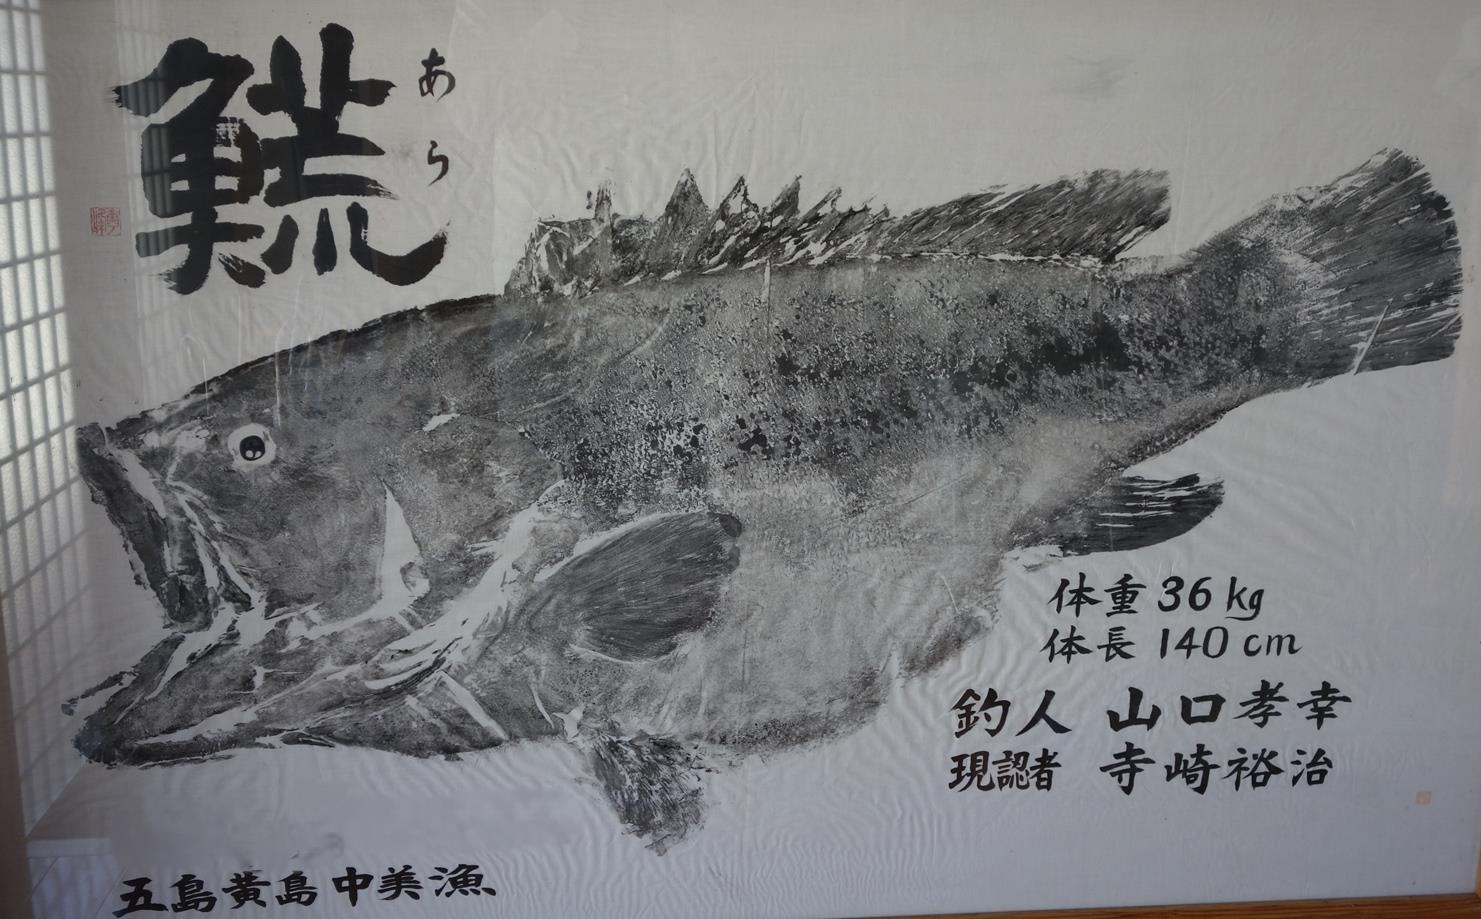 𩺊
あら
体重 36 kg
体長 140 cm
釣人 山口孝幸
現認者 寺崎裕治
五島黄島中美漁